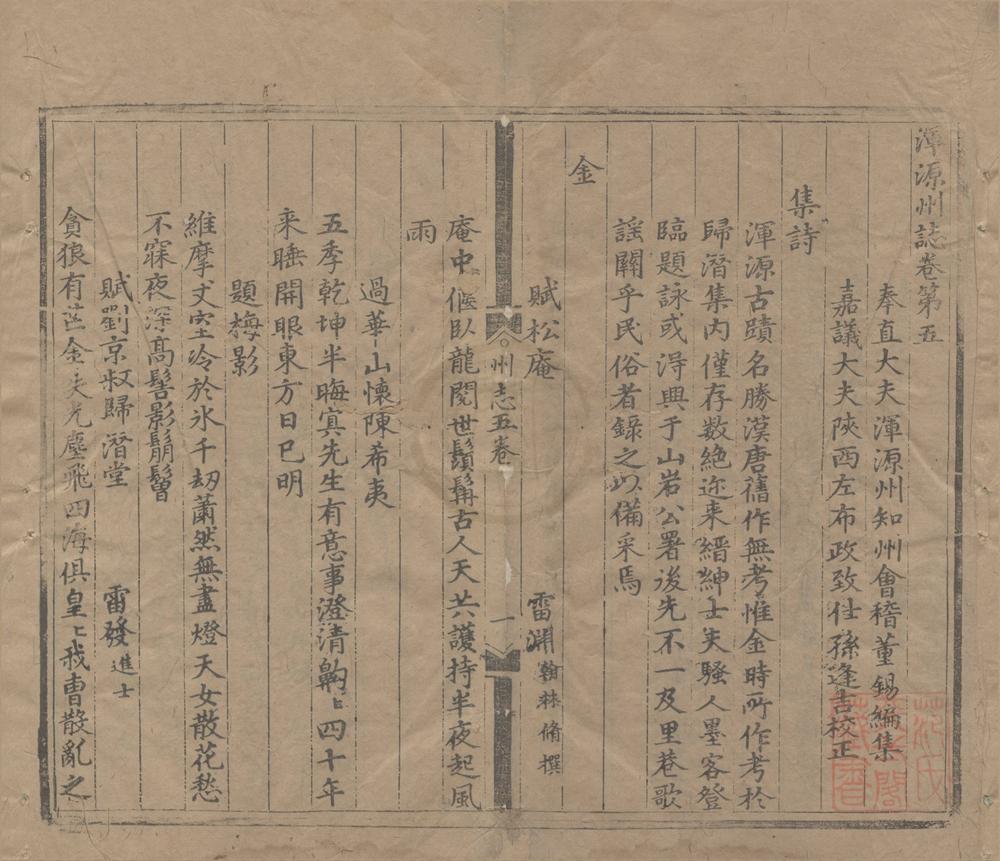 渾源州誌卷第五
奉直大夫渾源州知州會稽董錫編集
嘉議大夫陝西左布政致仕孫逢吉校正
集詩
渾源古蹟名勝漢唐舊作無考惟金時所作考於
歸潛集內僅存数絶迩来縉紳士夫騷人墨客登
臨題詠或淂興于山岩公署後先不一及里巷歌
謡關乎民俗者錄之以備采焉
金
賦松庵 雷淵翰林脩撰
州志五卷 一
庵中偃臥龍閱世鬚髯古人天共護持半夜起風
雨
過華山懷陳希夷
五季乾坤半晦冥先生有意事澄清齁〻四十年
来睡開眼東方日已明
題梅影
維摩丈室冷於氷千刼蕭然無盡燈天女散花愁
不寐夜深高髻影鬅鬙
賦劉京叔歸潛堂 雷發進士
貪狼有芒金夫光塵飛四海俱皇〻我曹散亂之
范氏天一閣藏書